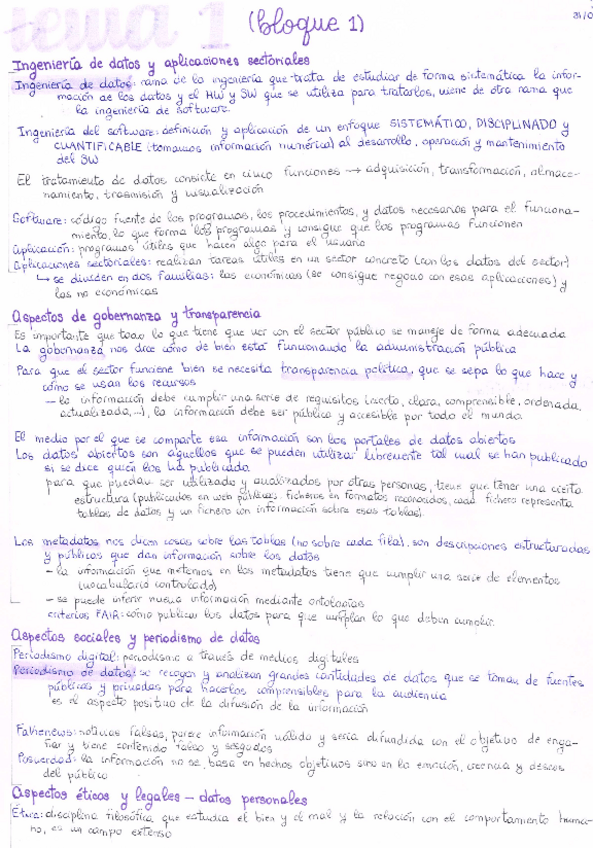 tema 1 (bloque 1)
Ingeniería de datos y aplicaciones sectoriales
Ingeniería de datos: rama de la ingeniería que trata de estudiar de forma sistemática la infor-
mación de los datos y el HW y SW que se utiliza para tratarlos, viene de otra rama que
la ingeniería de software.
Ingeniería del software: definición y aplicación de un enfoque SISTEMÁTICO, DISCIPLINADO y
CUANTIFICABLE (tomamos información numérica) al desarrollo, operación y mantenimiento
del SW
El tratamiento de datos consiste en cinco funciones → adquisición, transformación, almace-
namiento, trasmisión y visualización
Software: código fuente de los programas, los procedimientos, y datos necesarios para el funciona-
miento, lo que forma los programas y consigue que los programas funcionen
Aplicación: programas útiles que hacen algo para el usuario
Aplicaciones sectoriales: realizan tareas útiles en un sector concreto (con los datos del sector)
↳ se dividen en dos familias: las económicas (se consigue negocio con esas aplicaciones) y
las no económicas
Aspectos de gobernanza y transparencia
Es importante que todo lo que tiene que ver con el sector público se maneje de forma adecuada
La gobernanza nos dice cómo de bien está funcionando la administración pública
Para que el sector funcione bien se necesita transparencia política, que se sepa lo que hace y
cómo se usan los recursos
- la información debe cumplir una serie de requisitos (cierta, clara, comprensible, ordenada,
actualizada,...), la información debe ser pública y accesible por todo el mundo
El medio por el que se comparte esa información son los portales de datos abiertos
Los datos abiertos son aquellos que se pueden utilizar libremente tal cual se han publicado
si se dice quién los ha publicado
para que puedan ser utilizado y analizados por otras personas, tiene que tener una cierta
estructura (publicados en web públicas, ficheros en formatos reconocidos, cada fichero representa
tablas de datos y un fichero con información sobre esas tablas).
Los metadatos nos dicen cosas sobre las tablas (no sobre cada fila), son descripciones estructuradas
y públicos que dan información sobre los datos
- la información que metemos en los metadatos tiene que cumplir una serie de elementos
(vocabulario controlado)
- se puede inferir nueva información mediante ontologías
criterios FAIR: cómo publicar los datos para que cumplan lo que deben cumplir
Aspectos sociales y periodismo de datos
Periodismo digital: periodismo a través de medios digitales
Periodismo de datos: se recogen y analizan grandes cantidades de datos que se toman de fuentes
públicas y privadas para hacerlos comprensibles para la audiencia
es el aspecto positivo de la difusión de la información
noticias falsas, parece información válida y seria difundida con el objetivo de enga-
ñar y tiene contenido falso y sesgados
Posverdad: la información no se basa en hechos objetivos sino en la emoción, creencia y deseos
del público
Aspectos éticos y legales - datos personales
Ética: disciplina filosófica que estudia el bien y el mal y la relación con el comportamiento huma-
no, es un campo extenso